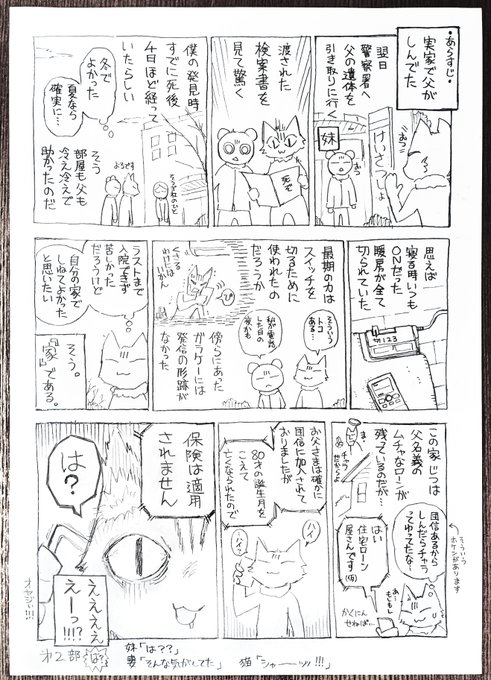 ・あらすじ・
実家で父が
しんでた
翌日
警察署へ
父の遺体を
引き取りに行く
けいさつしょ
妹
渡された
検案書を
見て驚く
死亡
僕の発見時
すでに死後
4日ほど経って
いたらしい
冬で
よかった
夏なら
確実に…
そう
部屋も父も
冷え冷えで
助かったのだ
思えば
寝る時いつも
ONだった
暖房が全て
切られていた
最期の力は
スイッチを
切るために
使われたの
だろうか
そういう
トコ
ある…
私が電話
した日の
夜かも
傍らにあった
ガラケーには
発信の形跡が
なかった
ラストまで
入院できず
苦しかった
だろうけど
自分の家で
しねてよかった
と思いたい
そう。
『家』である。
この家 じつは
父名義の
ムチャなローンが
残っているのだが…
団信あるから
しんだらチャラ
ってゆってたな…
そういう
ホケンがあります
はい
住宅ローン
屋さんです(仮)
あー
もしもし
かくにん
せねば…
お父さまは確かに
団信に加入されて
おりましたが
80才の誕生月を
こえて
亡くなられたので
ハイ
ハイ?
保険は適用
されません
は?
ええええ
えーっ!!!?
オヤジィ!!!
第2部
妹「は??」
妻「そんな気がしてた」
猫「シャーーッッ!!!」